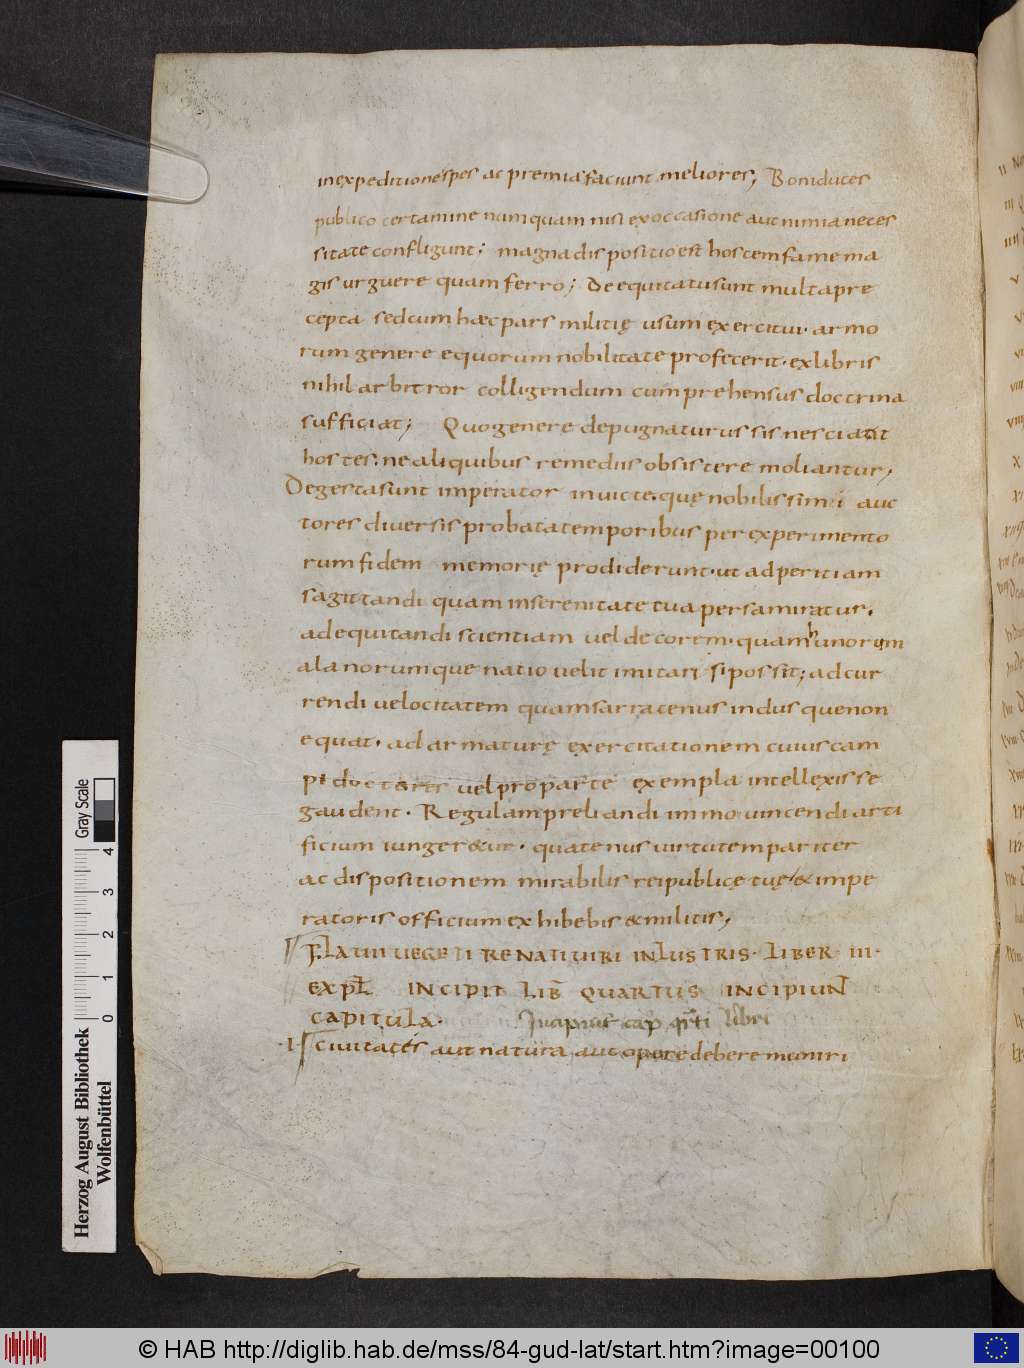 in expeditione spes ac premia faciunt meliores; Boni duces
publico certamine numquam nisi ex occasione aut nimia neces
sitate confligunt; magna dispositio est hostem fame ma
gis urguere quam ferro; De equitatu sunt multa pre
cepta sed cum hæc pars militię usum exercitui. armo
rum genere equorum nobilitate profecerit. ex libris
nihil arbitror colligendum cum prehensus doctrina
sufficiat; Quo genere depugnaturus sis nesciant
hostes. ne aliquibus remediis obsistere moliantur;
Degesta sunt imperator invicte. quę nobilissimi auc
tores diversis probata temporibus per experimento
rum fidem memorię prodiderunt. ut ad peritiam
sagittandi quam in serenitate tua persa miratur.
ad equitandi scientiam vel decorem. quam hunorum
alanorumque natio velit imitari si possit; ad cur
rendi velocitatem quam sarracenus indusque non
equat. ad armaturę exercitationem cuius cam
pi doctores vel pro parte exempla intellexisse
gaudent. Regulam preliandi immo vincendi arti
ficium iungeret&ur. quatenus virtutem pariter
ac dispositionem mirabilis reipublicę tuę & impe
ratoris officium exhibebis & militis;
P. flatii vegeti renati viri inlustris. liber. iii.
expl incipit lib quartus incipiun
capitula. Incipiunt cap qrti libri
.I. civitates aut natura aut opere debere muniri
Gray Scale
4
3
2
1
0
Herzog August Bibliothek
Wolfenbüttel
© HAB http://diglib.hab.de/mss/84-gud-lat/start.htm?image=00100